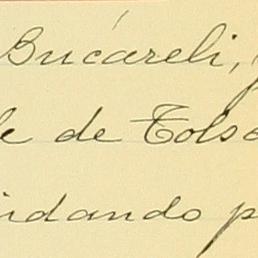 Bucareli,
le de Tolsa
idando p